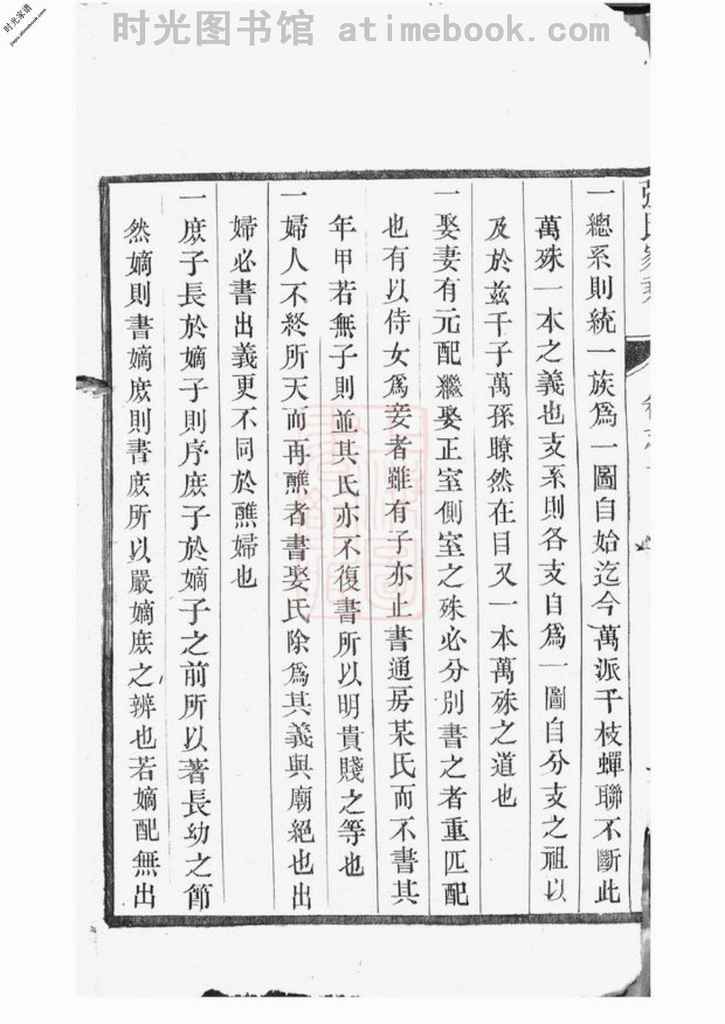 时光图书馆 atimebook.com
时光家谱
一總系則統一族爲一圖自始迄今萬派千枝蟬聯不斷此
萬殊一本之義也支系則各支自爲一圖自分支之祖以
及於茲千子萬孫瞭然在目又一本萬殊之道也
一娶妻有元配繼娶正室側室之殊必分別書之者重匹配
也有以侍女爲妾者雖有子亦止書通房某氏而不書其
年甲若無子則並其氏亦不復書所以明貴賤之等也
一婦人不終所天而再醮者書娶氏除爲其義與廟絕也出
婦必書出義更不同於醮婦也
一庶子長於嫡子則序庶子於嫡子之前所以著長幼之節
然嫡則書嫡庶則書庶所以嚴嫡庶之辨也若嫡配無出